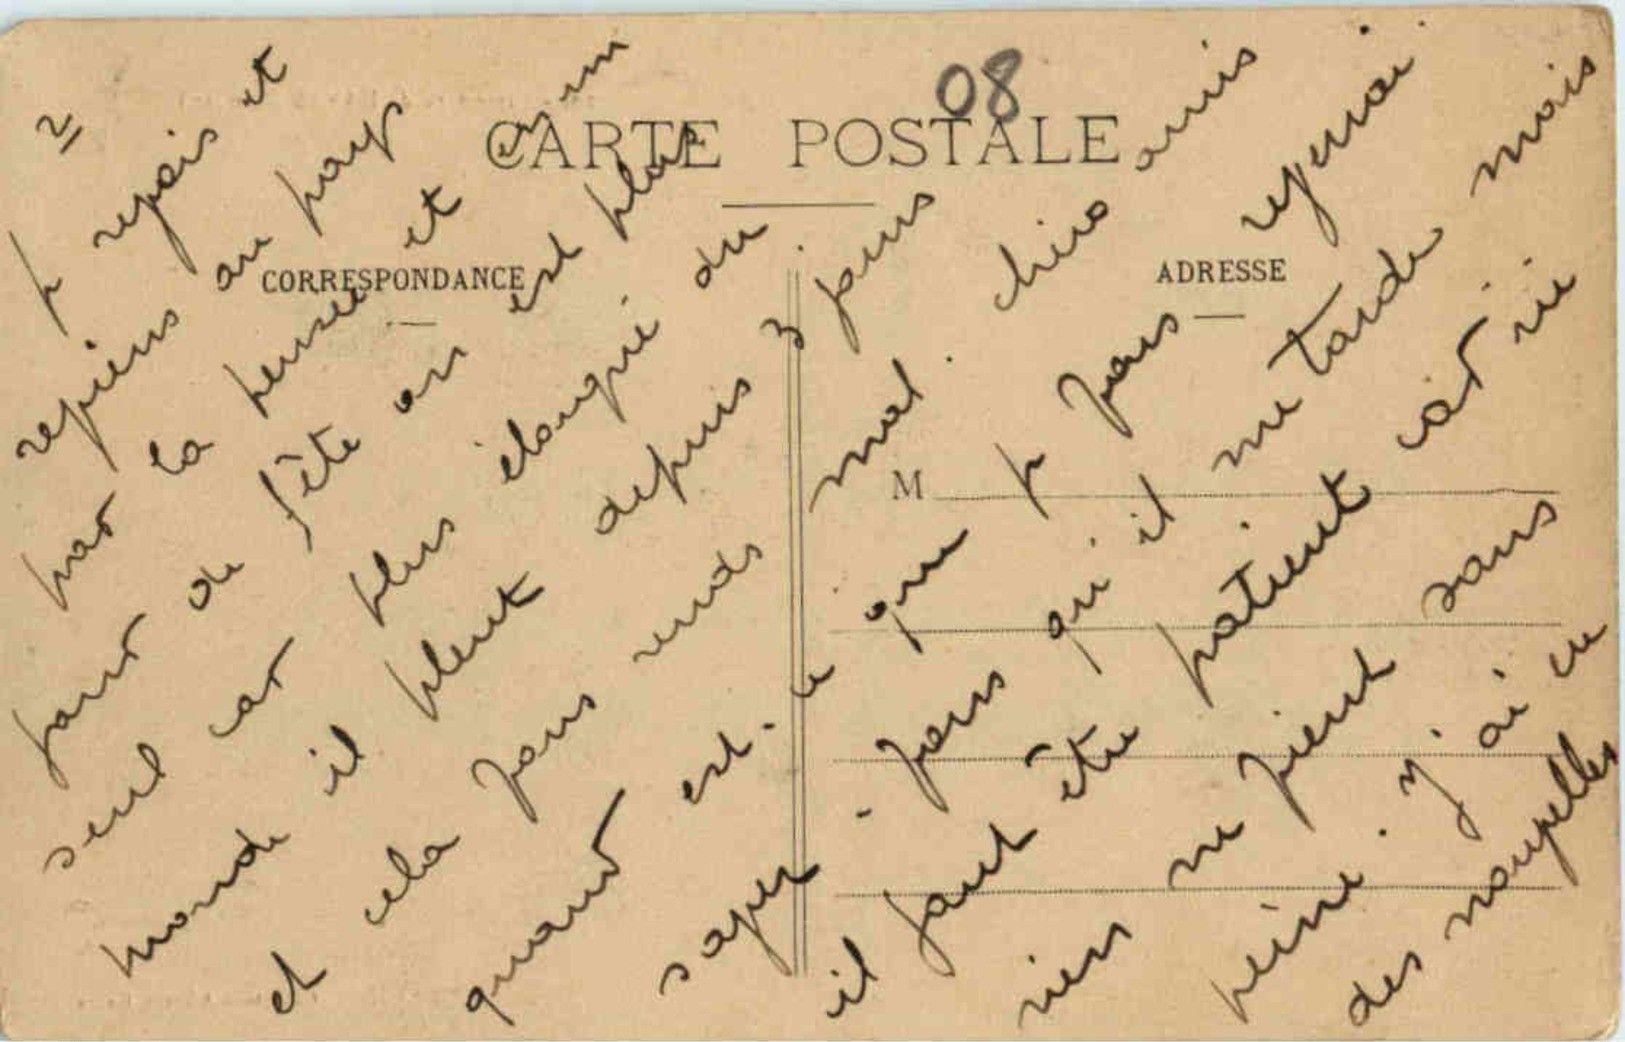 2
je revois et
reviens au pays
par la pensée et en un
jour de fête on est plus
seul car plus éloigné du
monde il pleut depuis 3 jours
et cela vous rends mal. chers amis
quand est-ce que je vous reverrai
savez-vous qu'il me tarde mais
il faut être patient car ici
rien ne vient sans
peine. j'ai eu
des nouvelles
08
CARTE POSTALE
CORRESPONDANCE
ADRESSE
M